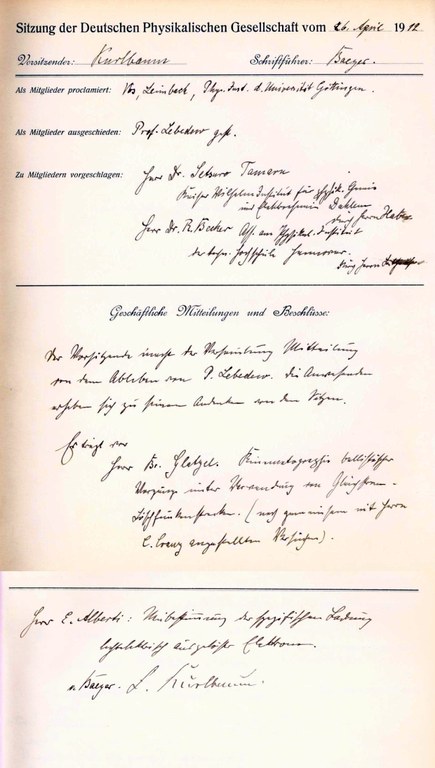 Sitzung der Deutschen Physikalischen Gesellschaft vom 26. April 1912
Vorsitzender: Kurlbaum Schriftführer: Baeyer.
Als Mitglieder proclamiert: Leimbach, Phys. Inst. d. Universität Göttingen.
Als Mitglieder ausgeschieden: Prof. Lebedew gest.
Zu Mitgliedern vorgeschlagen: Herr Dr. Setsuro Tamaru
Kaiser Wilhelm Institut für physik. Chemie
und Elektrochemie Dahlem
durch Herrn Haber
Herr Dr. R. Becker Ass. am Physikal. Institut
der techn. Hochschule Hannover.
durch Herrn
Geschäftliche Mitteilungen und Beschlüsse:
Der Vorsitzende macht der Versammlung Mitteilung
von dem Ableben von P. Lebedew. Die Anwesenden
erheben sich zu seinem Andenken von den Sitzen.
Es trägt vor
Herr Br. Glatzel. Kinematographie ballistischer
Vorgänge unter Verwendung von Gleichstrom-
Löschfunkenstrecken. (nach gemeinsam mit Herrn
C. Cranz angestellten Versuchen).
Herr E. Alberti: Neubestimmung der spezifischen Ladung
lichtelektrisch ausgelöster Elektronen.
v. Baeyer. F. Kurlbaum.